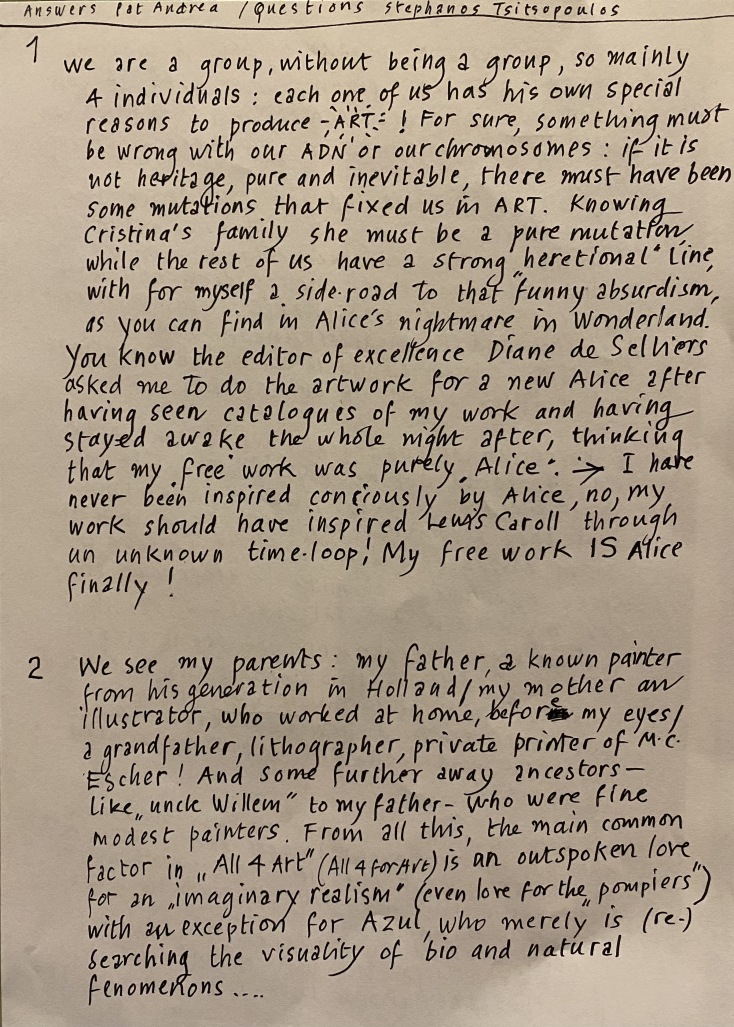 Answers Pat Andrea / Questions Stephanos Tsitsopoulos
1 we are a group, without being a group, so mainly
4 individuals : each one of us has his own special
reasons to produce -ART- ! For sure, something must
be wrong with our ADN or our chromosomes : if it is
not heritage, pure and inevitable, there must have been
some mutations that fixed us in ART. Knowing
Cristina's family she must be a pure mutation,
while the rest of us have a strong "heretional" line,
with for myself a side-road to that "funny absurdism,
as you can find in Alice's nightmare in Wonderland.
You know the editor of excellence Diane de Selliers
asked me to do the artwork for a new Alice after
having seen catalogues of my work and having
stayed awake the whole night after, thinking
that my "free" work was purely "Alice". → I have
never been inspired conciously by Alice, no, my
work should have inspired Lewis Caroll through
an unknown time-loop! My free work IS Alice
finally !
2 We see my parents : my father, a known painter
from his generation in Holland / my mother an
illustrator, who worked at home, before my eyes /
a grandfather, lithographer, private printer of M.C.
Escher ! And some further away ancestors –
like „uncle Willem" to my father – who were fine
modest painters. From all this, the main common
factor in „All 4 Art" (All 4 for Art) is an outspoken love
for an „imaginary realism" (even love for the „pompiers")
with an exception for Azul, who merely is (re-)
searching the visuality of bio and natural
fenomenons ....